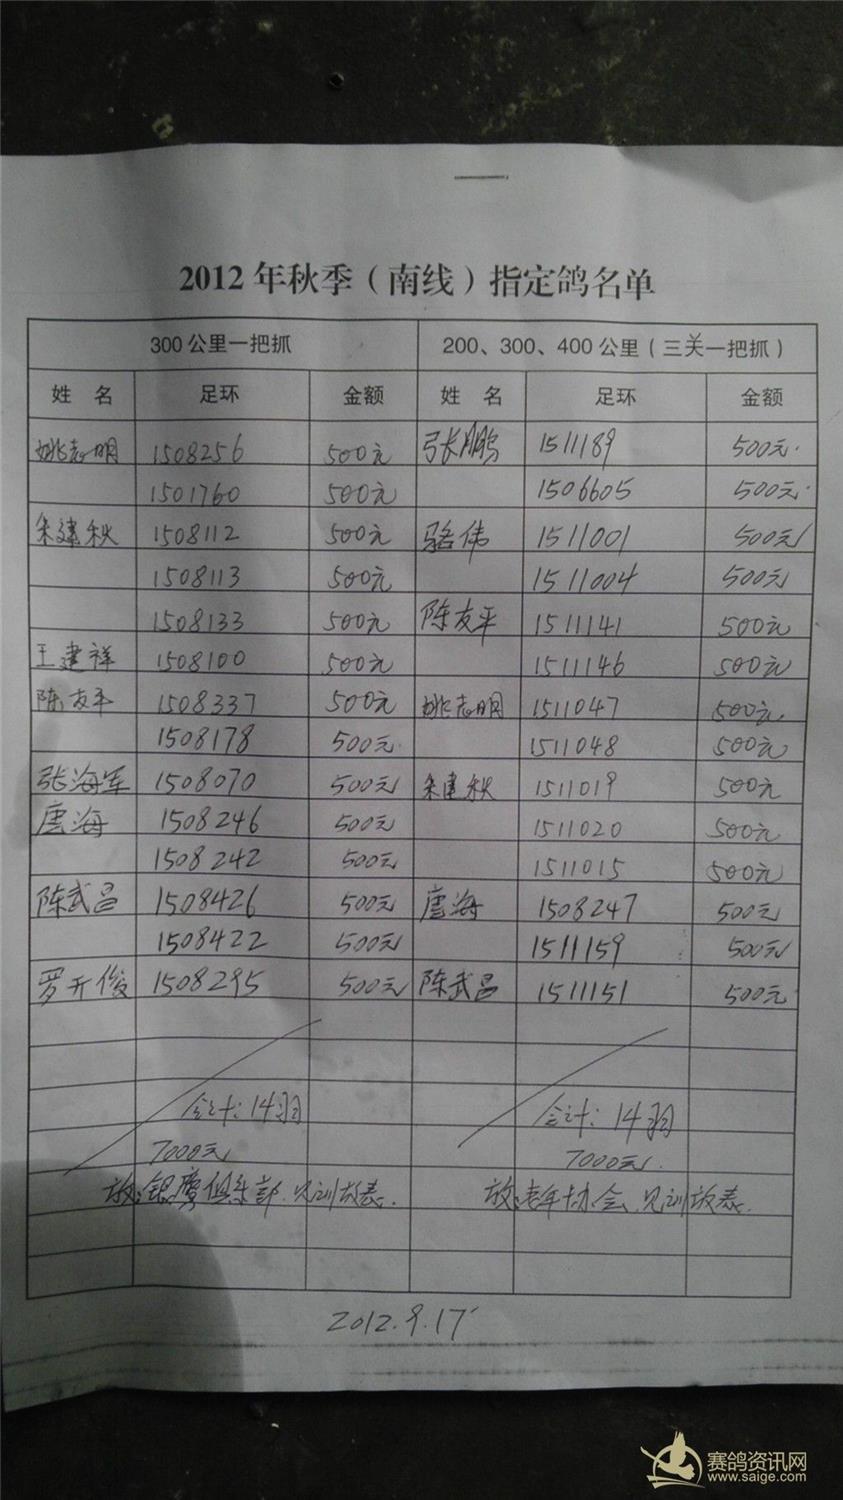 2012年秋季(南线)指定鸽名单
300公里一把抓 200、300、400公里(三关一把抓)
姓 名 足环 金额 姓 名 足环 金额
姚志明 1508256 500元 张鹏 1511189 500元.
1501760 500元 1506605 500元.
朱建秋 1508112 500元 骆伟 1511001 500元
1508113 500元 1511004 500元
1508133 500元 陈友平 1511141 500元
王建祥 1508100 500元 1511146 500元
陈友平 1508337 500元 姚志明 1511047 500元
1508178 500元. 1511048 500元
张海军 1508070 500元 朱建秋 1511019 500元
唐海 1508246 500元 1511020 500元
1508242 500元 1511015 500元
陈武昌 1508426 500元 唐海 1508247 500元
1508422 500元 1511159 500元
罗开俊 1508295 500元 陈武昌 1511151 500元
合计:14羽 合计:14羽
7000元 7000元.
放:银鹰俱乐部.见训放表. 放:老年协会.见训放表.
2012.9.17
赛鸽资讯网
www.saige.com